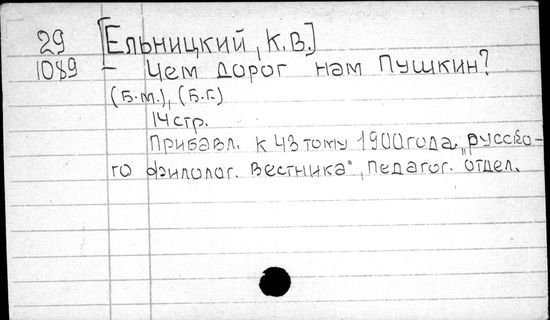 29 [Ельницкий, К.В.]
1089 – Чем дорог нам Пушкин?
(Б.м.), (Б.г.)
14 стр.
Прибавл. к 43 тому 1900 года „русско-
го филолог. Вестника“, педагог. отдел.